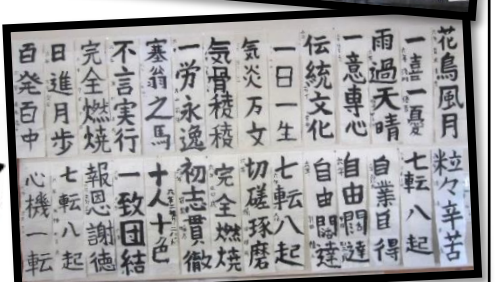 花鳥風月
一喜一憂
雨過天晴
一意専心
伝統文化
一日一生
気炎万丈
気骨稜稜
一労永逸
塞翁之馬
不言実行
完全燃焼
日進月歩
百発百中
粒々辛苦
七転八起
自業自得
自由闊達
自由闊達
七転八起
切磋琢磨
完全燃焼
初志貫徹
十人十色
一致団結
報恩謝徳
七転八起
心機一転